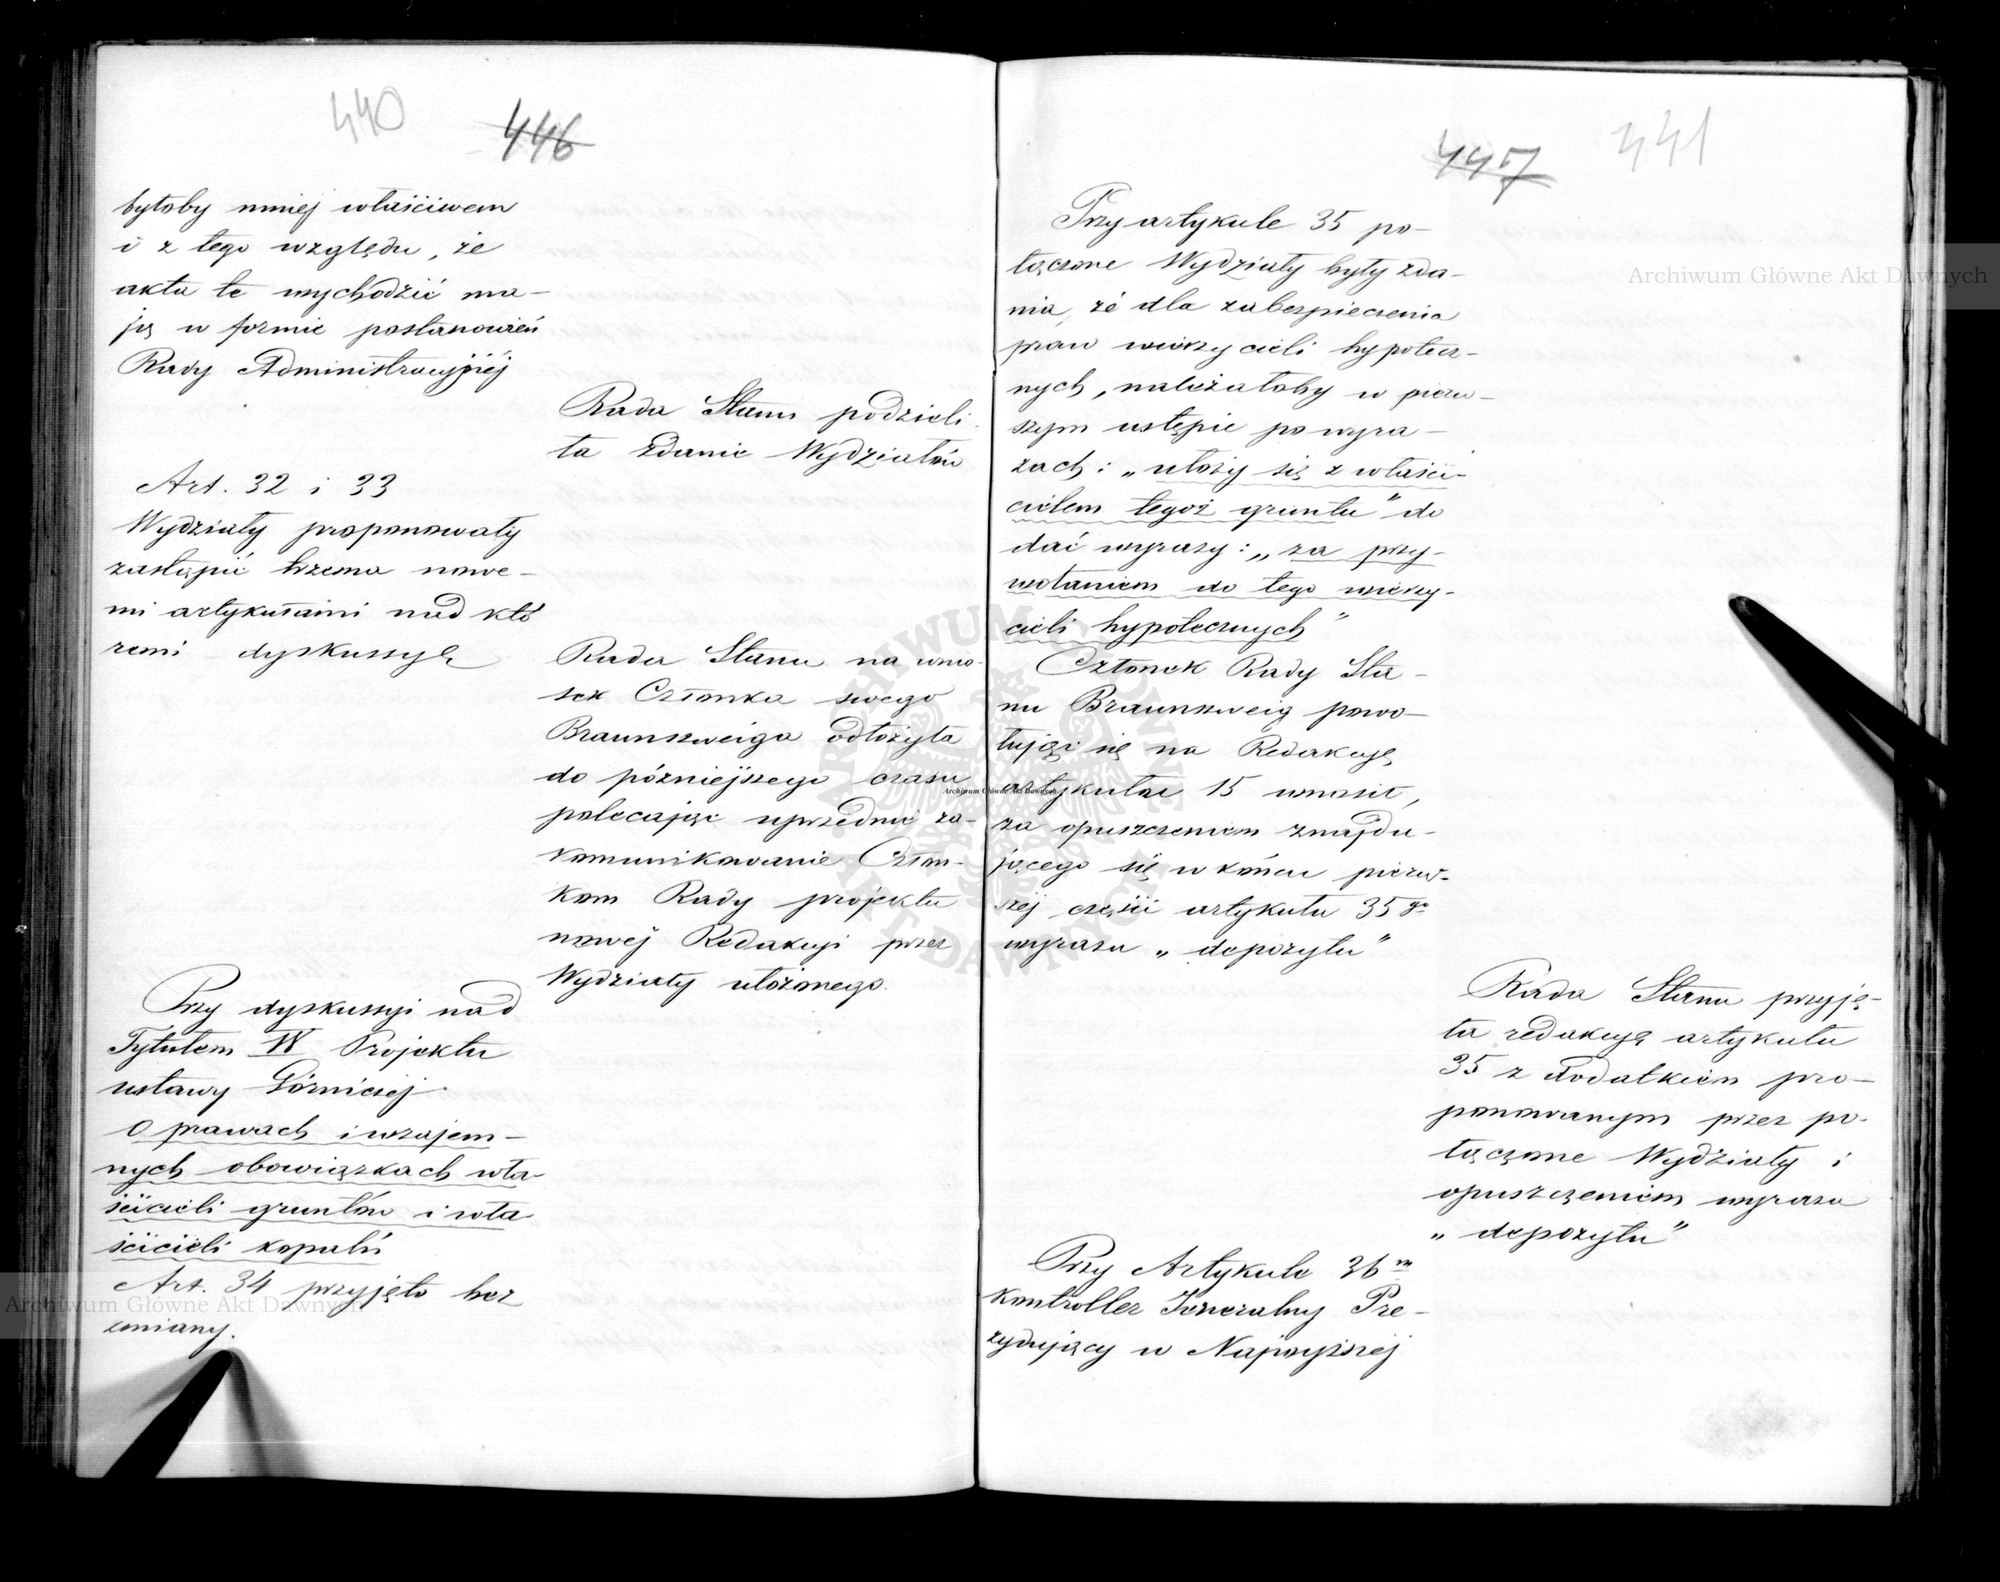 440
446
byłoby mniej właściwem
i z tego względu, że
akta te wychodzić ma-
ją w formie postanowień
Rady Administracyjnéj
Rada Stanu podzieli
ła zdanie Wydziałów
Art. 32 i 33
Wydziały proponowały
zastąpić trzema nowe-
mi artykułami nad któ
remi dyskussyę
Rada Stanu na wnio-
sek Członka swego
Braunszweiga odłożyła
do późniejszego czasu
polecając uprzednie za-
komunikowanie Człon-
kom Rady projektu
nowéj Redakcyi przez
Wydziały ułożonego.
Przy dyskussyi nad
Tytułem IV Projektu
ustawy Górniczej
O prawach i wzajem-
nych obowiązkach wła-
ścicieli gruntów i wła
ścicieli kopalń
Art. 34 przyjęto bez
zmiany.
447
441
Przy artykule 35 po-
łączone Wydziały były zda-
nia, że dla zabezpieczenia
praw wierzycieli hypotecz-
nych, należałoby w pierw-
szym ustępie po wyra-
zach: „ułoży się z właści-
cielem tegoż gruntu" do
dać wyrazy: „za przy-
wołaniem do tego wierzy-
cieli hypotecznych"
Członek Rady Sta-
nu Braunszweig powo-
łując się na Redakcyę
artykułu 15 wnosił,
za opuszczeniem znajdu-
jącego się w końcu pierw-
széj części artykułu 35go
wyrazu „depozytu"
Rada Stanu przyję-
ła redakcyę artykułu
35 z dodatkiem pro-
ponowanym przez po-
łączone Wydziały i
opuszczeniem wyrazu
„depozytu"
Przy Artykule 36m
Kontroller Jeneralny Pre-
zydujący w Najwyższéj
Archiwum Główne Akt Dawnych
Archiwum Główne Akt Dawnych
Archiwum Główne Akt Dawnych
ARCHIWUM GŁÓWNE AKT DAWNYCH